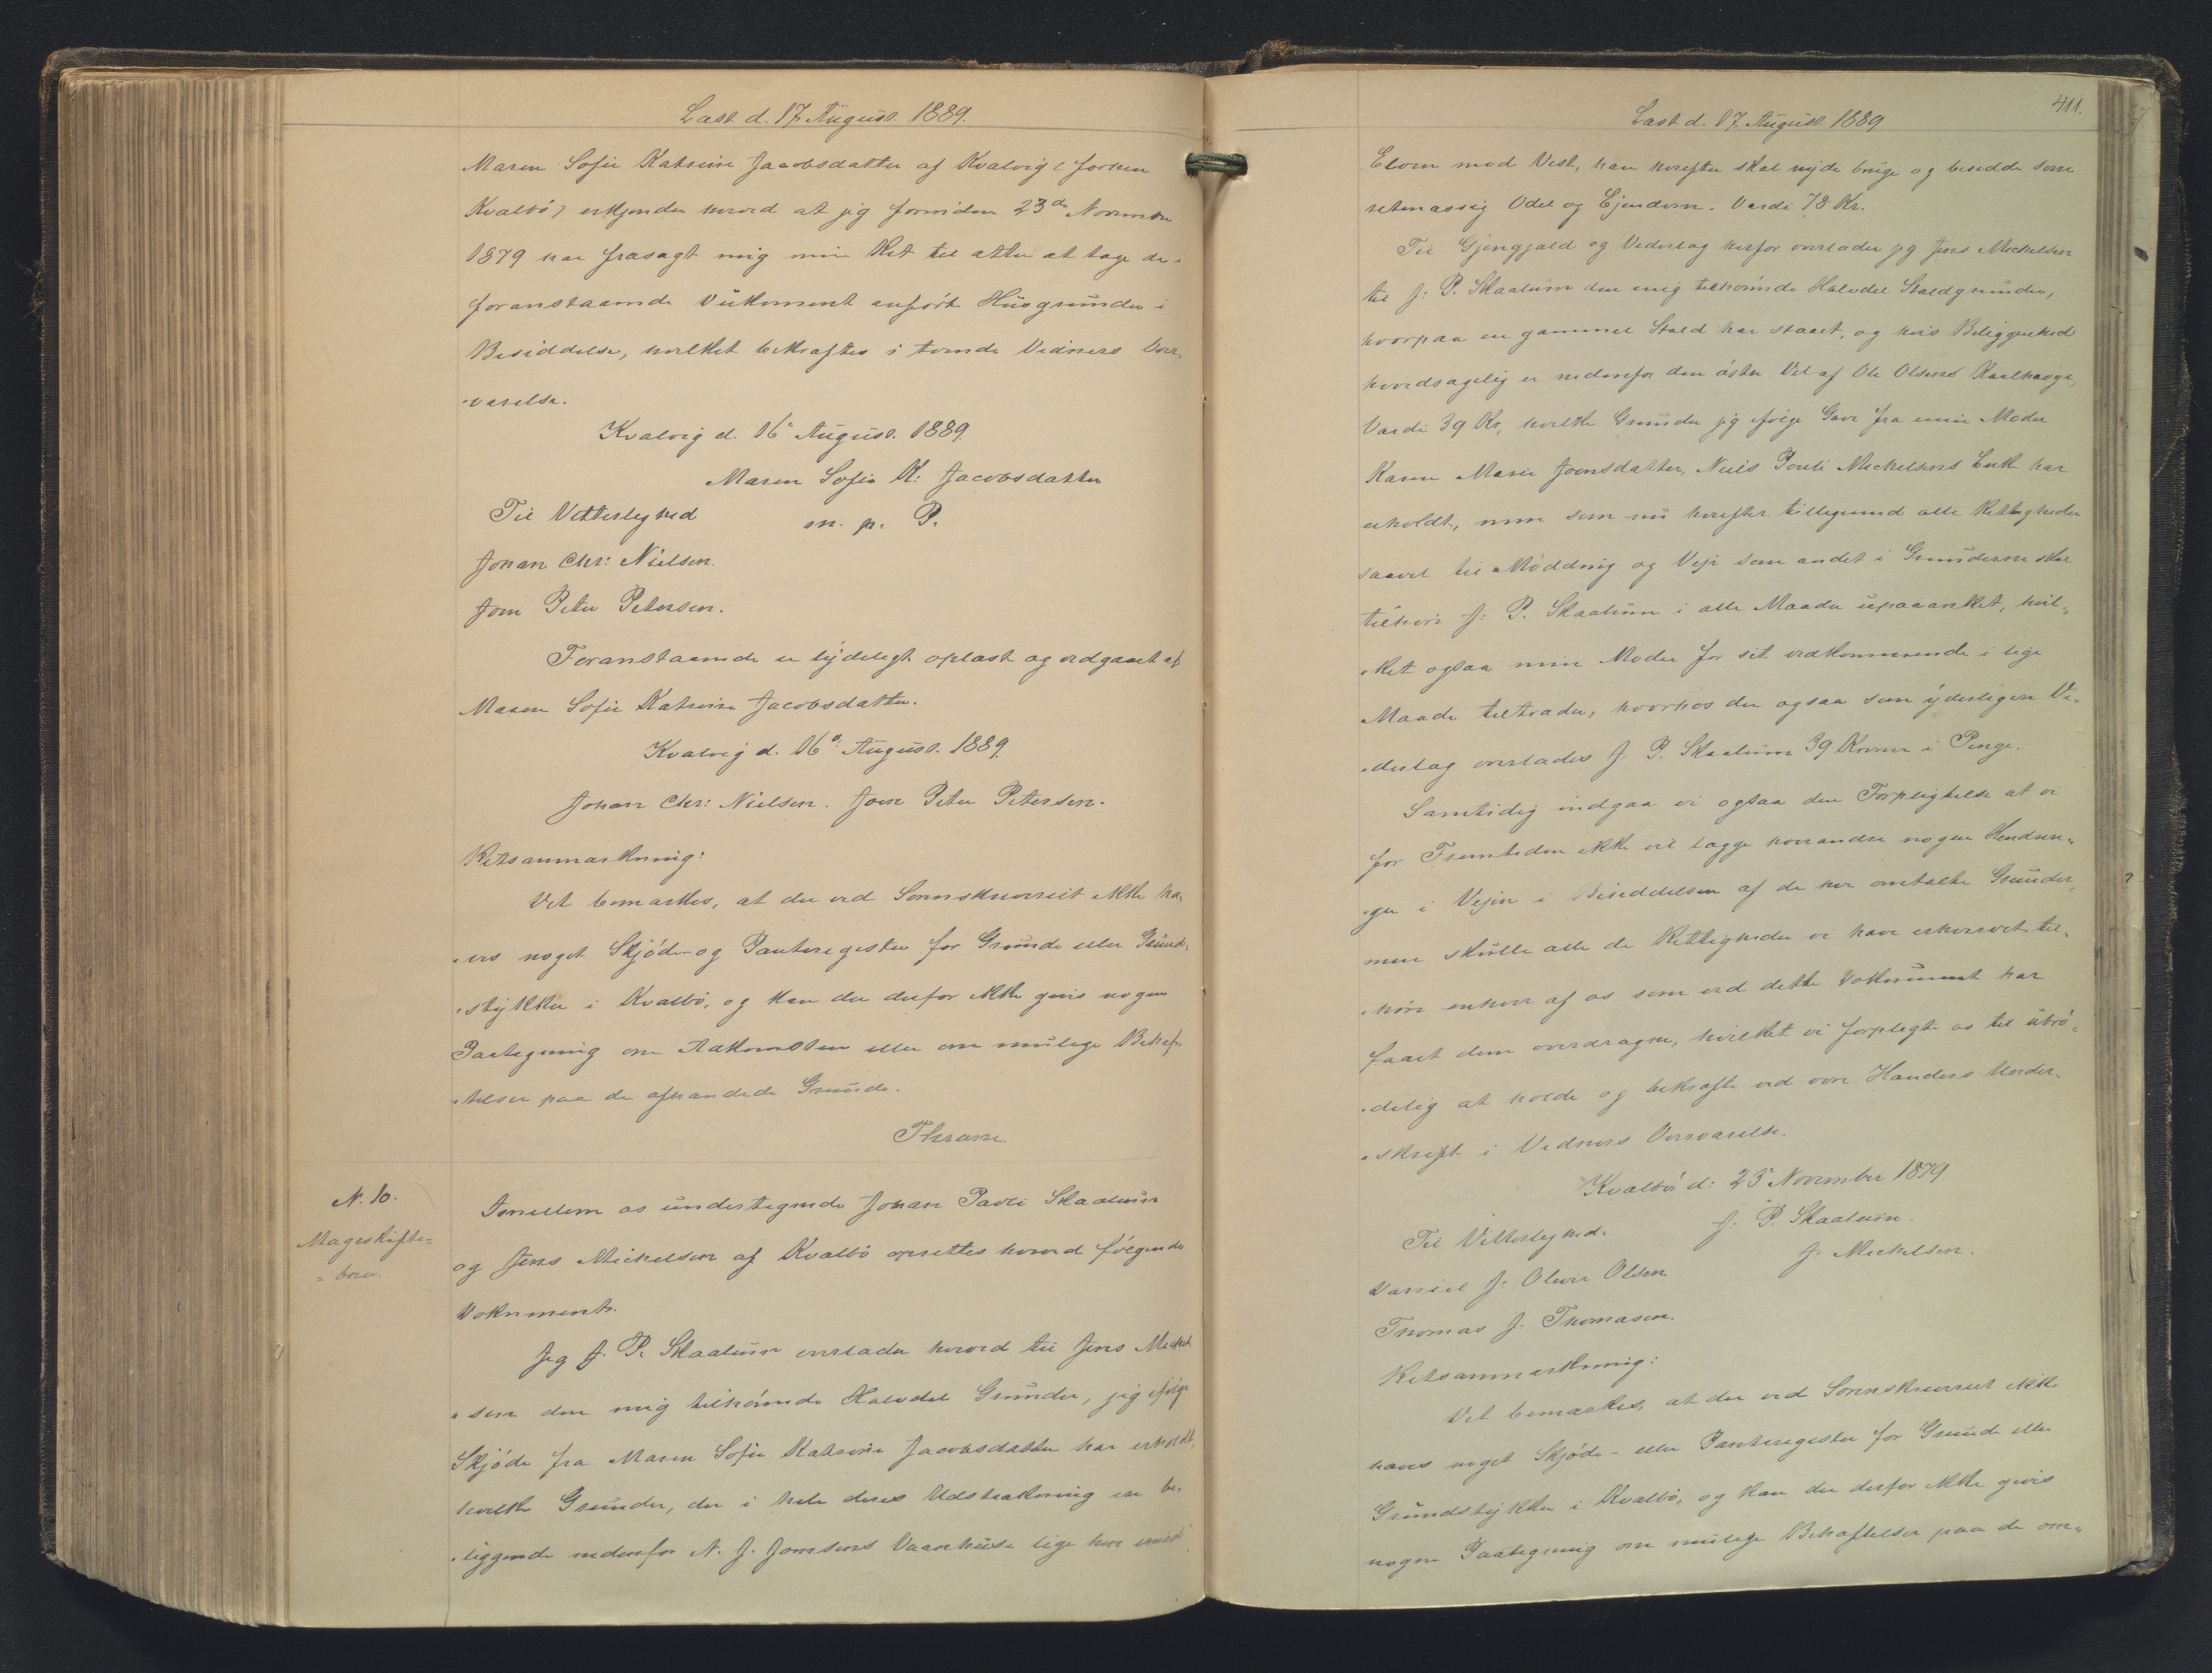 Læst d. 17 August. 1889.
Maren Sofie Katrine Jacobsdatter af Kvalvig (forhen
Kvalbø) erkjender herved at jeg forinden 23de November
1879 har frasagt mig min Ret til atter at tage de i
foranstaaende Dokument anført Husgrunde i
Besiddelse, hvilket bekræftes i tvende Vidners Over-
-værelse.
Kvalvig d. 16de August. 1889.
Maren Sofie K: Jacobsdatter
Til Vitterlighed m. p. P.
Johan Chr: Nielsen.
Joen Peter Petersen.
Foranstaaende er lydeligt oplæst og vedgaaet af
Maren Sofie Katrine Jacobsdatter.
Kvalvig d. 16de August. 1889.
Johan Chr: Nielsen. Joen Peter Petersen.
Retsanmærkning:
Det bemærkes, at der ved Sorenskriveriet ikke ha-
-ves noget Skjøde- og Panteregister for Grunde eller Grund-
-stykker i Kvalbø, og kan der derfor ikke gives nogen
Paategning om Adkomsten eller om mulige Behæf-
-telser paa de afhændede Grunde.
Thrane.
N. 10.
Mageskifte=
= brev.
Imellem os undertegnede Johan Pauli Skaalum
og Jens Mickelsen af Kvalbø oprettes herved følgende
Dokument.
Jeg J. P. Skaalum overlader herved til Jens Mickel-
-sen den mig tilhørende Halvdel Grunder, jeg ifølge
Skjøde fra Maren Sofie Katrine Jacobsdatter har erholdt,
hvilke Grunder, der i hele deres Udstrækning er be-
-liggende nedenfor N. J. Joensens Vaanhuse lige hen imod
411.
Læst d. 17 August. 1889
Elven mod Vest, han herefter skal nyde bruge og besidde som
retmæssig Odel og Ejendom. Værdi 78 Kr.
Til Gjengjæld og Vederlag herfor overlader jeg Jens Mickelsen
til J: P. Skaalum den mig tilhørende Halvdel Staldgrunder,
hvorpaa en gammel Stald har staaet, og hvis Beliggenhed
hovedsagelig er nedenfor den østre Del af Ole Olsens Kaalhauge,
Værdi 39 Kr, hvilke Grunder jeg ifølge Gave fra min Moder
Karen Marie Joensdatter, Niels Pouli Mickelsens Enke har
erholdt, men som nu herefter tilligemed alle Rettigheder
saavel til Mødding og Veje som andet i Grunderne skal
tilhøre J: P. Skaalum i alle Maader upaaanket, hvil-
-ket ogsaa min Moder for sit vedkommende i lige
Maade tiltræder, hvorhos der ogsaa som yderligere Ve-
-derlag overlades J. P. Skaalum 39 Kroner i Penge.
Samtidig indgaa vi ogsaa den Forpligtelse at vi
for Fremtiden ikke vil lægge hverandre nogen Hendrin-
-ger i Vejen i Besiddelsen af de her omtalte Grunder,
men skulle alle de Rettigheder vi have erhvervet til-
-høre enhver af os som ved dette Dokument har
faaet dem overdragne, hvilket vi forpligte os til ubrø-
-delig at holde og bekræfte ved vore Hænders Under-
-skrift i Vidners Overværelse.
Kvalbø d: 23de November 1879
Til Vitterlighed. J. P. Skaalum.
J. Mickelsen.
Daniel J. Oliver Olsen
Thomas J. Thomasen.
Retsanmærkning:
Det bemærkes, at der ved Sorenskriveriet ikke
haves noget Skjøde- eller Panteregister for Grunde eller
Grundstykker i Kvalbø, og kan der derfor ikke gives
nogen Paategning om mulige Behæftelser paa de om-